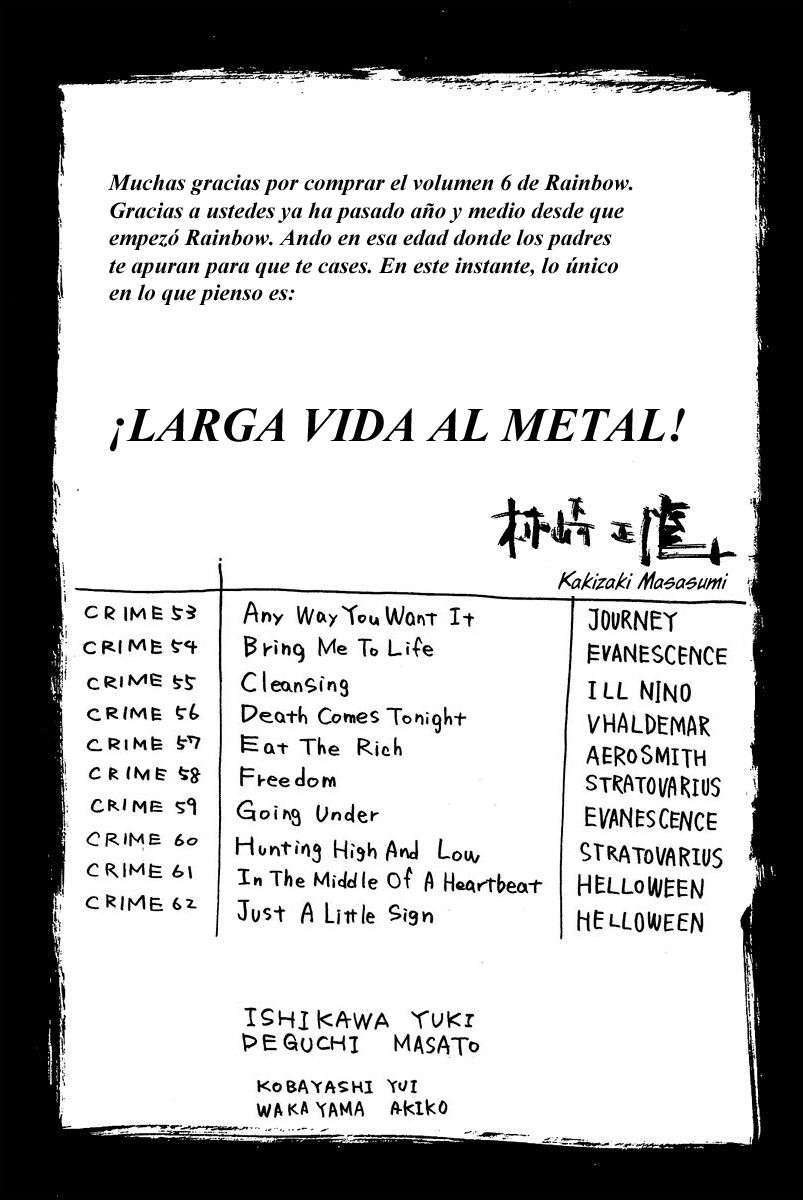 Muchas gracias por comprar el volumen 6 de Rainbow.
Gracias a ustedes ya ha pasado año y medio desde que
empezó Rainbow. Ando en esa edad donde los padres
te apuran para que te cases. En este instante, lo único
en lo que pienso es:
¡LARGA VIDA AL METAL!
柿崎正澄
Kakizaki Masasumi
CRIME 53 Any Way You Want It JOURNEY
CRIME 54 Bring Me To Life EVANESCENCE
CRIME 55 Cleansing ILL NINO
CRIME 56 Death Comes Tonight VHALDEMAR
CRIME 57 Eat The Rich AEROSMITH
CRIME 58 Freedom STRATOVARIUS
CRIME 59 Going Under EVANESCENCE
CRIME 60 Hunting High And Low STRATOVARIUS
CRIME 61 In The Middle Of A Heartbeat HELLOWEEN
CRIME 62 Just A Little Sign HELLOWEEN
ISHIKAWA YUKI
DEGUCHI MASATO
KOBAYASHI YUI
WAKAYAMA AKIKO